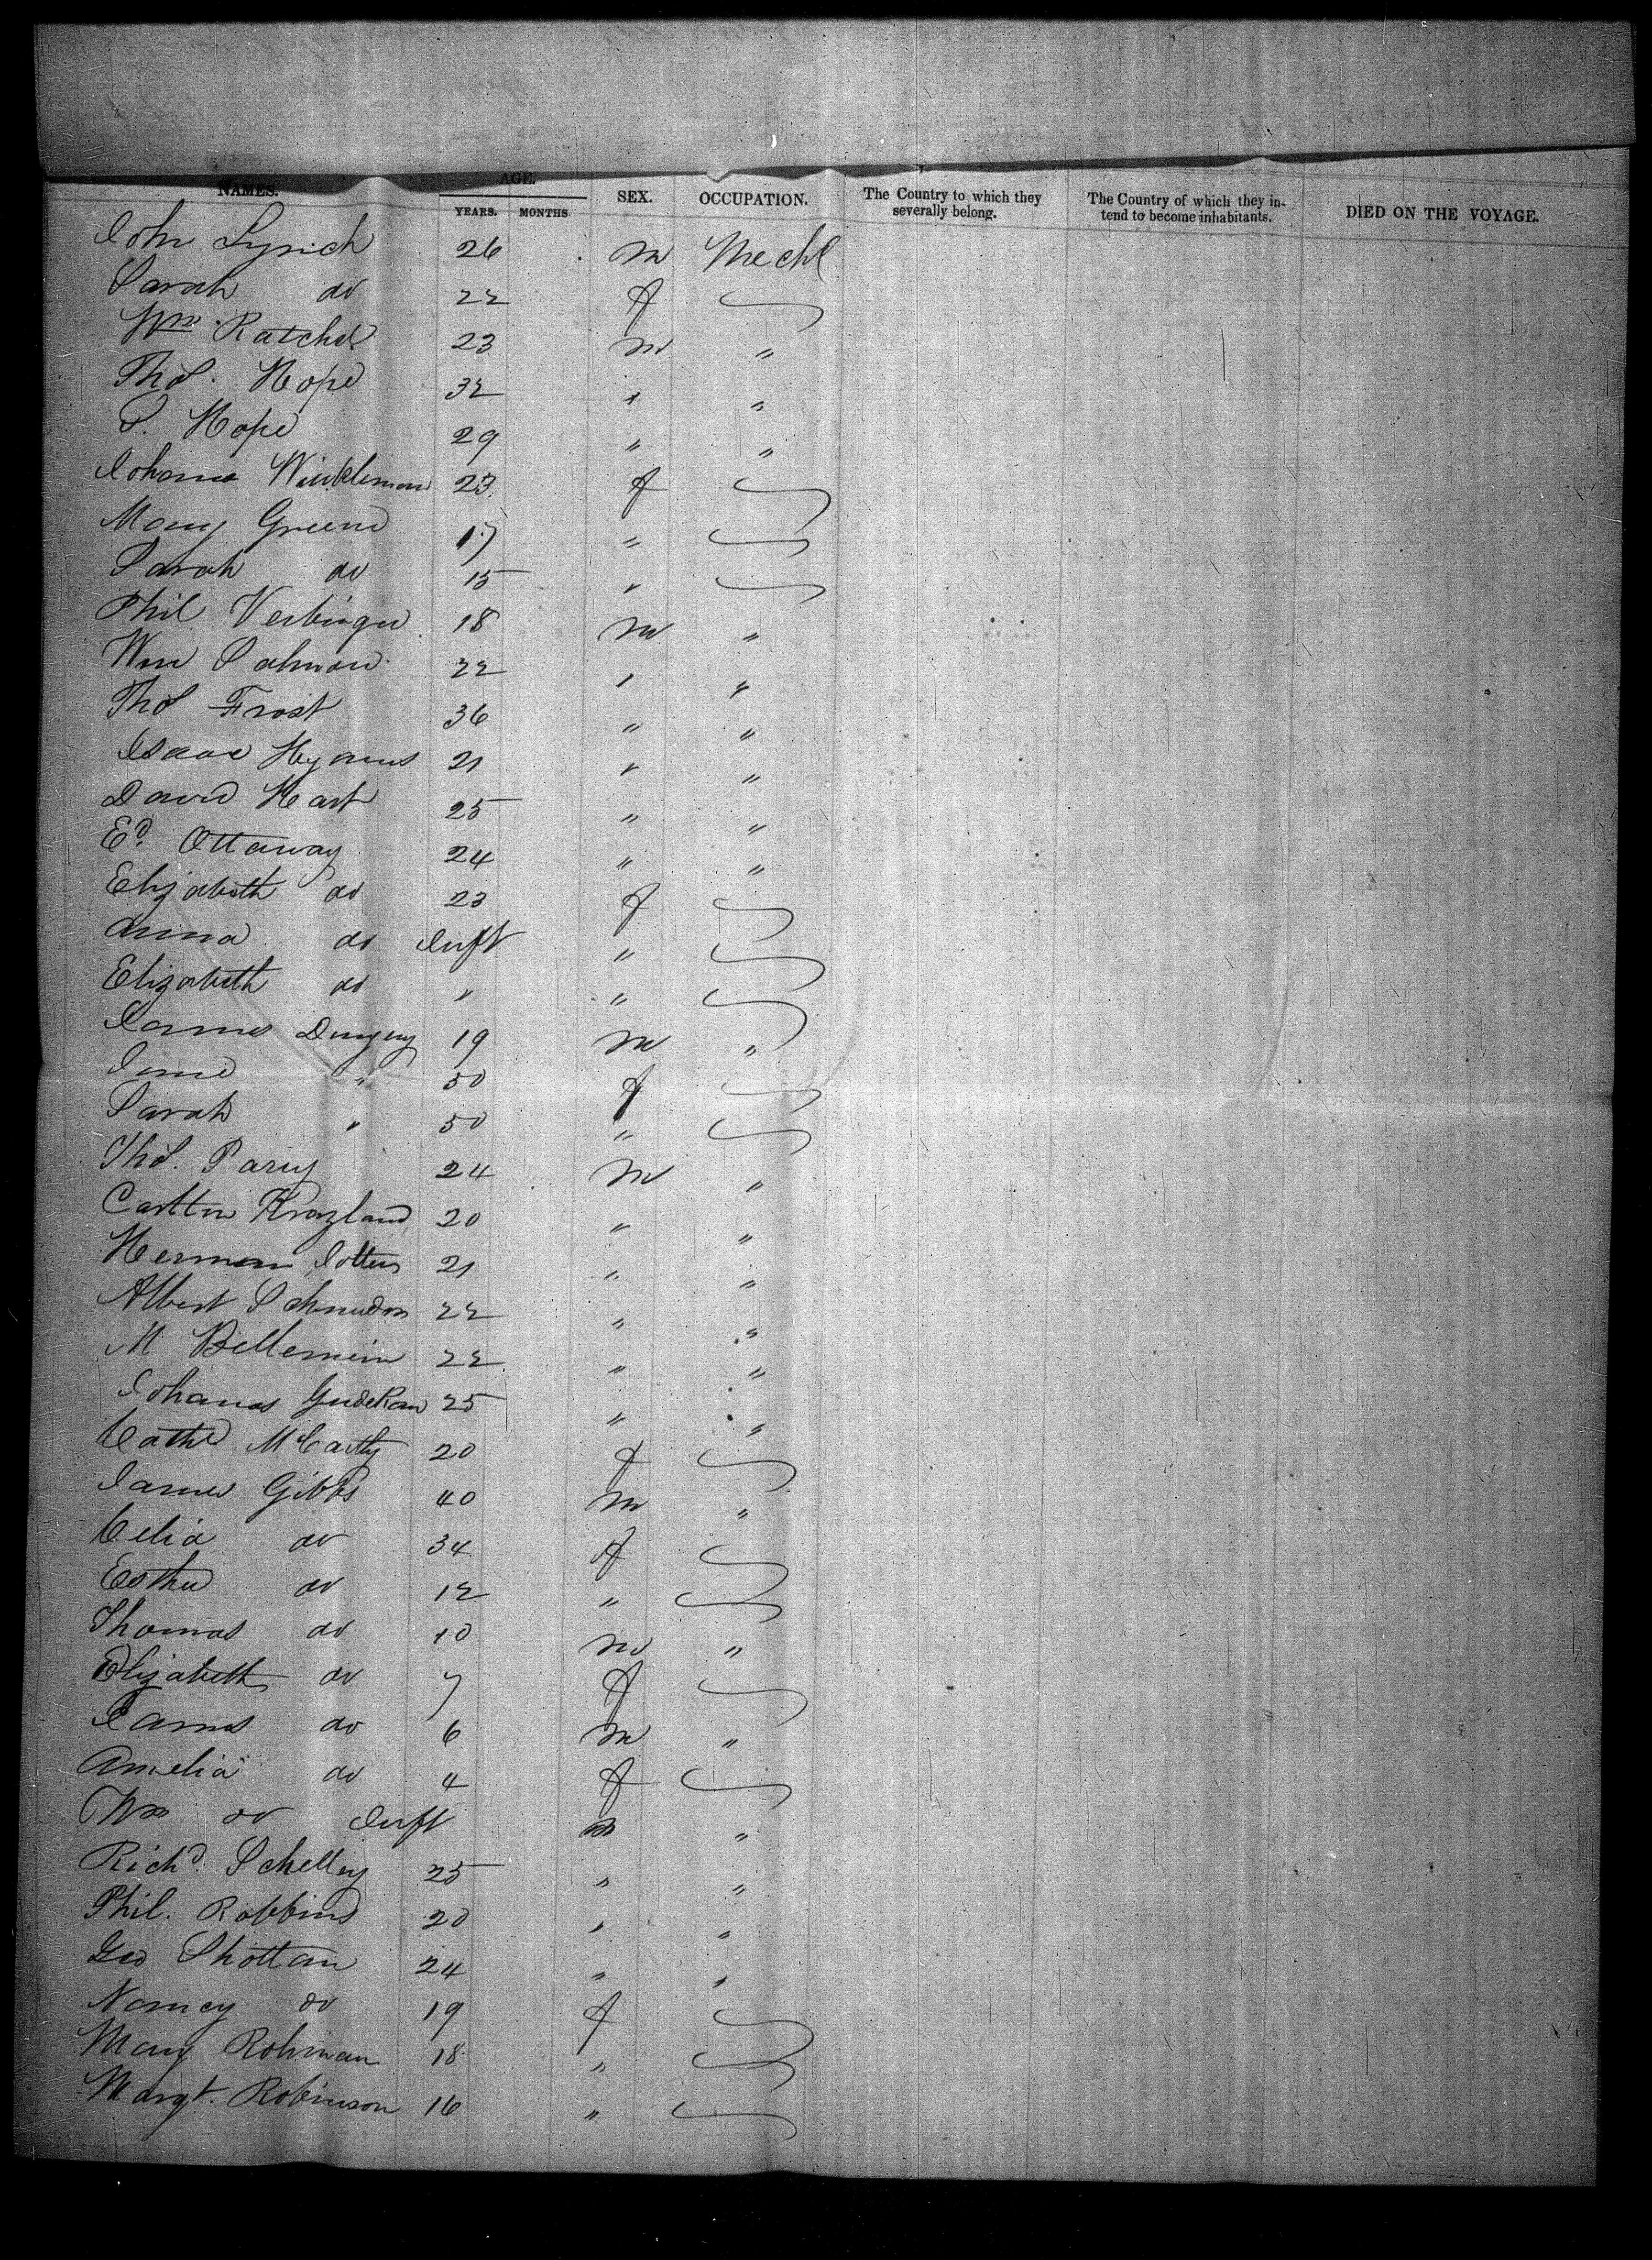 NAMES. AGE. SEX. OCCUPATION. The Country to which they severally belong. The Country of which they intend to become inhabitants. DIED ON THE VOYAGE.
YEARS. MONTHS.
John Lynch 26 m Mechc
Sarah do 22 f
Wm Ratchel 23 m "
Thos. Hope 32 " "
S. Hope 29 " "
Johanna Winkleman 23 f
Mary Greene 17 "
Sarah do 15 "
Phil Verbinger 18 m "
Wm Salmon 22 " "
Thos Frost 36 " "
Isaac Hyams 21 " "
David Hart 25 " "
Ed. Ottaway 24 " "
Elizabeth do 23 f
Anna do Inft "
Elizabeth do " "
James 19 m "
Jane " 50 f
Sarah " 50 "
Thos. Parry 24 m "
Carlton 20 " "
Herman 21 " "
Albert 22 " "
M 22 " "
Johannes 25 " "
Cathe McCarthy 20 f
James Gibbs 40 m "
Celia do 34 f
Esther do 12 "
Thomas do 10 m "
Elizabeth do 7 f
James do 6 m "
Amelia do 4 f
Wm do Inft m "
Richd. Schelley 25 " "
Phil. Robbins 20 " "
Geo Shottan 24 " "
Nancy do 19 f
Mary Rohman 18 "
Margt. Robinson 16 "